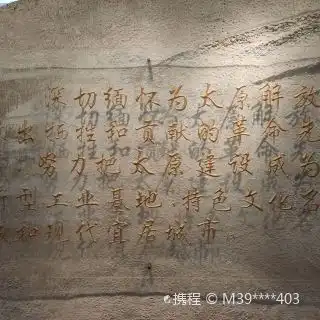 深切缅怀为太原解放
牺牲和贡献的革命先
努力把太原建设成为
型工业基地、特色文化名
和现代宜居城市
携程 © M39****403